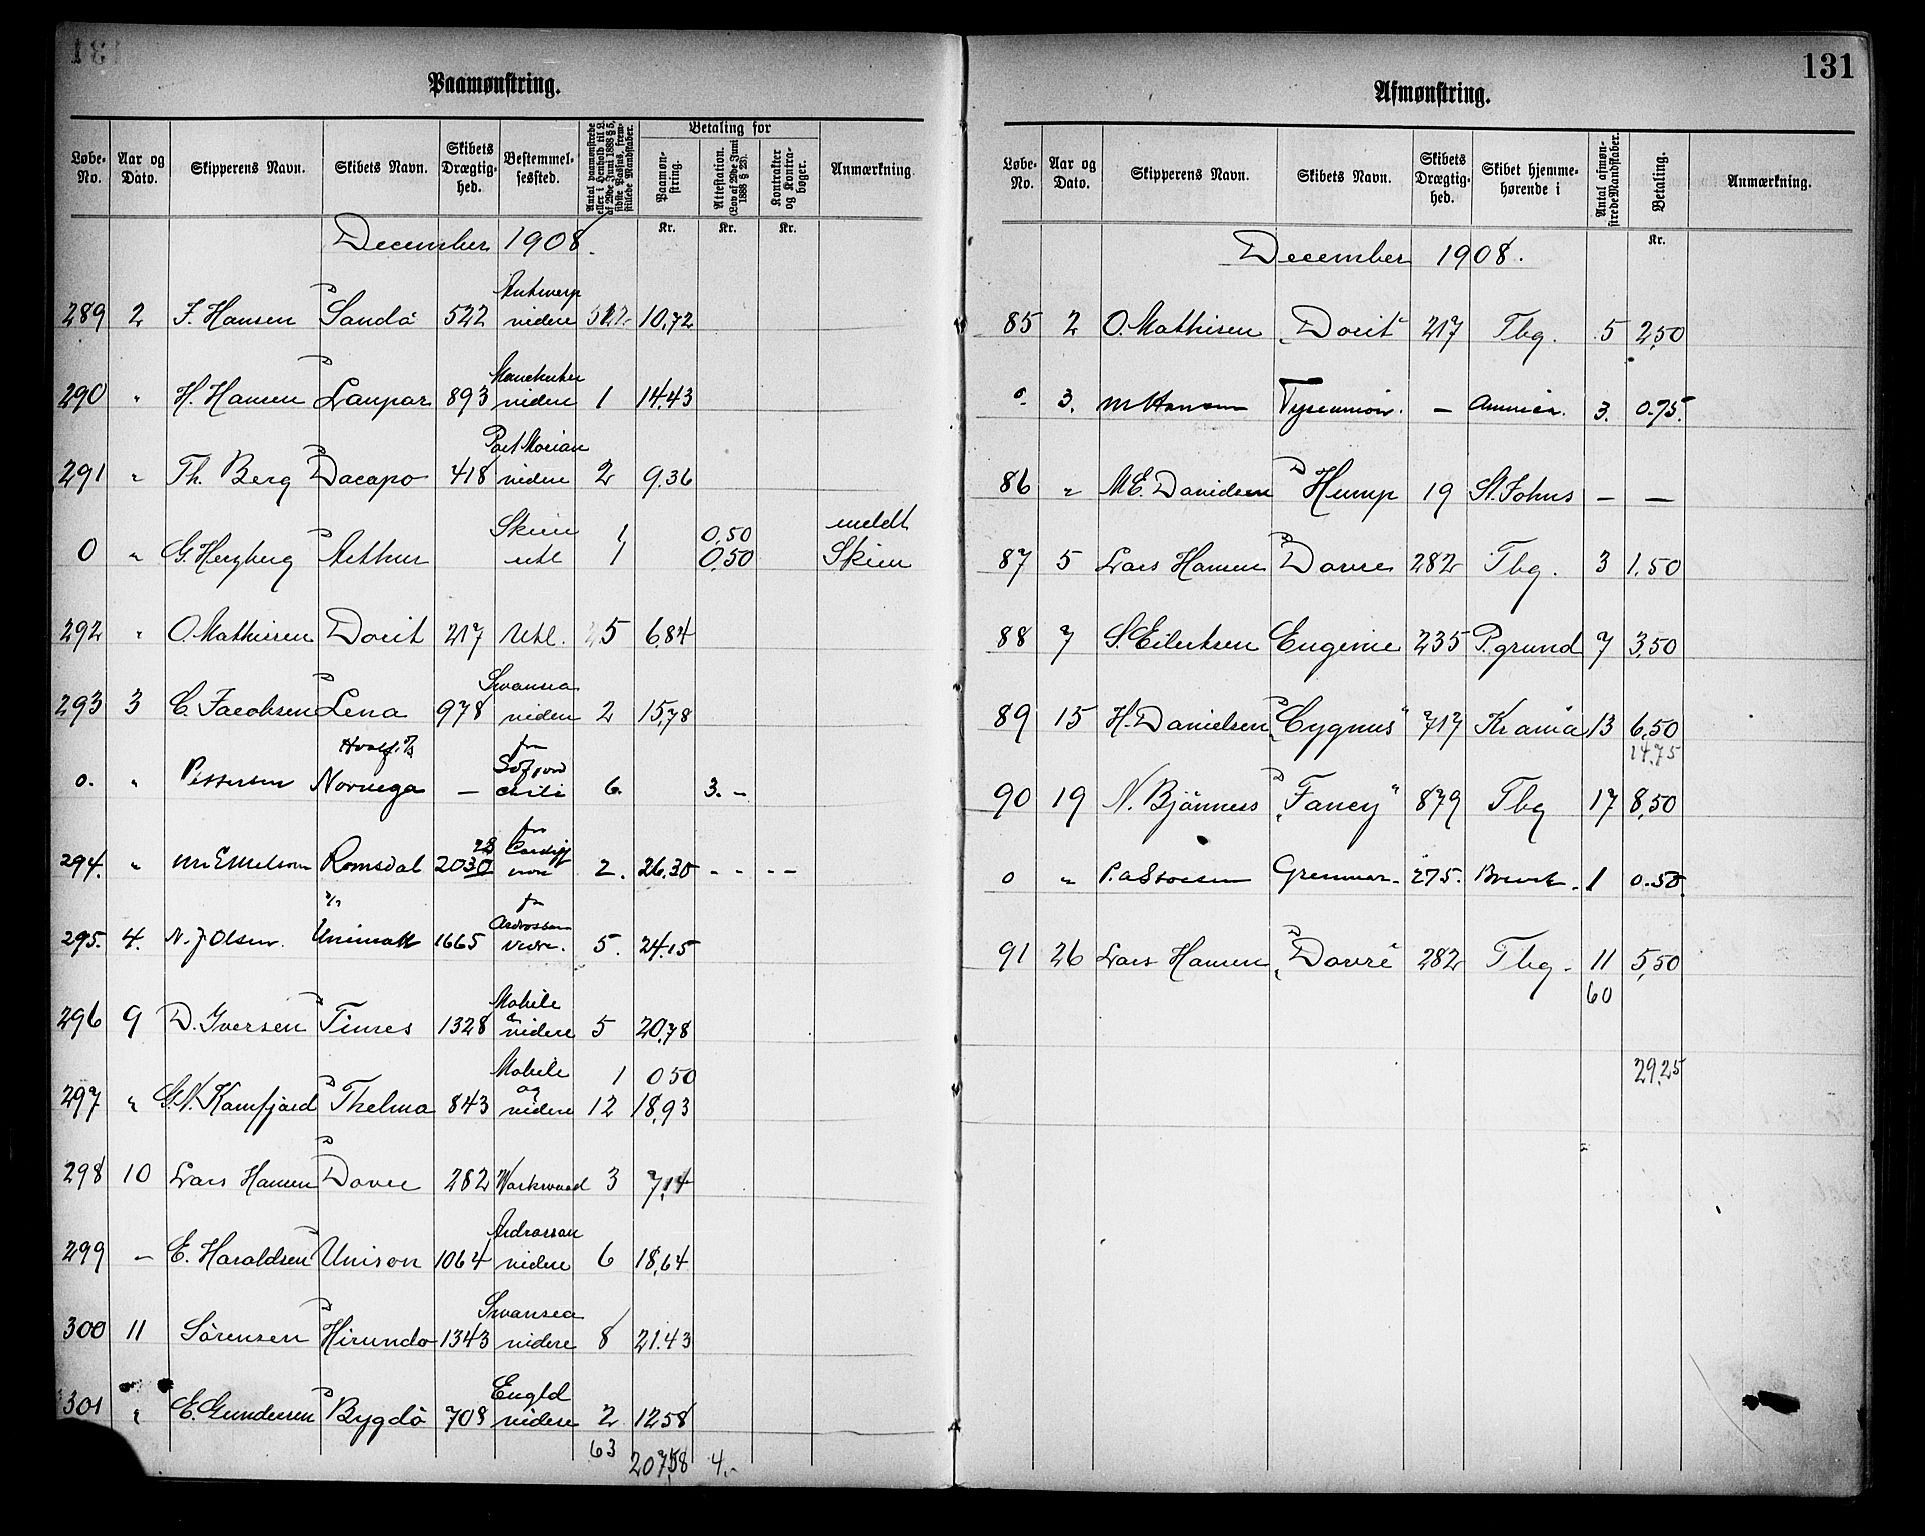 Paamønstring.
Løbe-No. Aar og Dato. Skipperens Navn. Skibets Navn. Skibets Drægtig-hed. Bestemmel-sessted. Antal paamønstrede eller i Henhold til L. af 29de Juni 1888 § 5, sidste Passus, frem-stillede Mandskaber. Betaling for Paamøn-string. Attestation. (Lov af 29de Juni 1888 § 23). Kontrakter og Kontra-bøger. Anmærkning.
Kr. Kr. Kr.
December 1908.
Antwerp
289 2 F. Hansen Sandö 522 videre 10,72
290 " H. Hansen 893 videre 1 14,43
291 " Th. Berg Dacapo 418 videre 2 9,36
Skien 1 0,50 meldt
0 " G. Herzberg Arthur utl 1 0,50 Skien
292 " O. Mathisen Dorit 217 Utl. 5 6,84
Swansea
293 3 C. Jacobsen Lena 978 videre 2 15,78
0. " Pettersen Norvega — 6. 3.-
294. " Romsdal 2030 2. 26,30 - - - -
295. 4. N. J Olsen. 1665 5. 24.15
Mobile
296 9 D. Iversen Times 1328 & videre 5 20,78
Mobile 1 0,50
297 " G. N. Kamfjord Thelma 843 og videre 12 18,93
298 10 Lars Hansen Dovre 282 3 7,14
Ardrossan
299 — E. Haraldsen Unison 1064 videre 6 18,64
Swansea
300 11 Sörensen Hirundo 1343 videre 8 21.43
Engld
301 " E. Gundersen Bygdö 708 videre 2 12,58
63 207,58 4.-
131
Afmønstring.
Løbe-No. Aar og Dato. Skipperens Navn. Skibets Navn. Skibets Drægtig-hed. Skibet hjemme-hørende i Antal afmøn-strede Mandskaber. Betaling. Anmærkning.
Kr.
December 1908.
85 2 O. Mathisen "Dorit" 217 Tbg. 5 2,50
0. 3. M Hansen — 3. 0.75.
86 " M E. Davidsen Hump 19 St. Johns — —
87 5 Lars Hansen Dovre 282 Tbg. 3 1,50
88 7 S. Eilertsen Eugenie 235 P.grund 7 3,50
89 15 H. Danielsen "Cygnus" 717 Krania 13 6,50
14,75
90 19 N. Bjönness "Fancy" 879 Tbg 17 8,50
0 " Grenmar. 275. Brevik. 1 0.50.
91 26 Lars Hansen "Dovre" 282 Tbg. 11 5,50
60
29,25